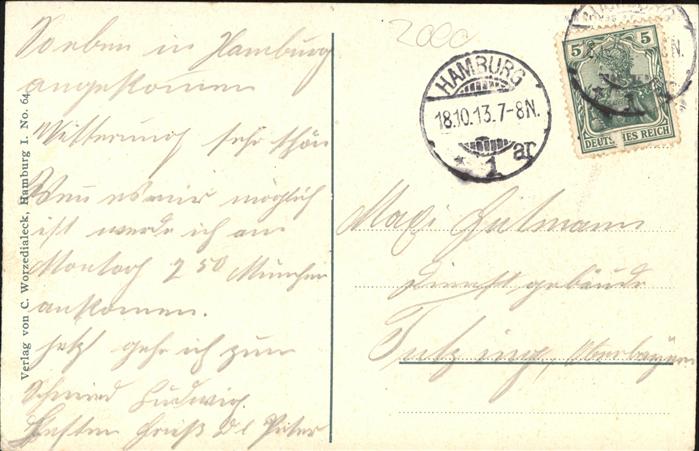 Soeben in Hamburg
angekommen
Witterung sehr schön
Wenn es mir möglich
ist werde ich am
Montag 2 50 München
ankommen.
Jetzt gehe ich zum
Schmied Ludwig.
Besten Gruß Peter
Verlag von C. Worzedialeck, Hamburg I. No. 64.
2000
HAMBURG
18.10.13.7-8N.
* 1 ar
5 5
DEUTSCHES REICH
N.
* 1
Maxi Gutmann
Dienstgebäude
Tutzing, Oberbayern